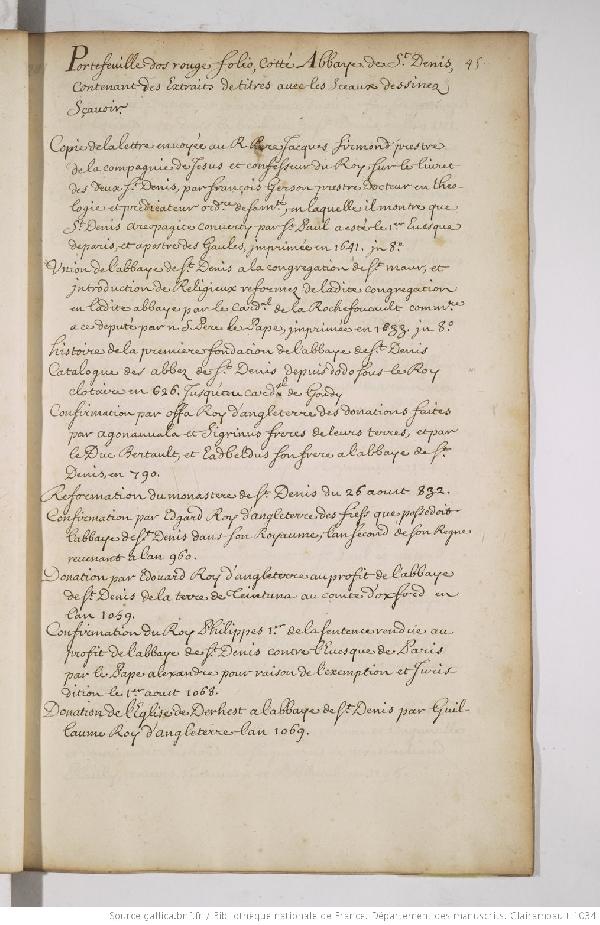 Portefeuille dos rouge folio, Cotté Abbaye de St. Denis, 45
Contenant des Extraits de titres avec les Sceaux dessinez
Sçavoir.
Copie de la lettre envoyée au R. Pere Jacques Sirmond prestre
de la compagnie de Jesus et confesseur du Roy, sur le livret
des deux St. Denis, par françois Gerson prestre docteur en theo-
logie et prédicateur ordre. de sa mté., in laquelle il montre que
St. Denis areopagite converty par St. Paul a esté le 1er Evesque
de paris, et apostre des Gaules, imprimée en 1641. in 8º.
Union de l'abbaye de St. Denis a la congregation de St. maur, et
introduction de Religieux reformez de ladite congregation
en ladite abbaye par le Cardl. de la Rochefoucault commre.
a ce deputé par n. S. Pere le Pape, imprimée en 1633. in 8º
histoire de la premiere fondation de l'abbaye de St. Denis
Catalogue des abbez de St. Denis depuis dodo sous le Roy
clotaire en 626. Jusqu'au cardal de Gondy
Confirmation par offa Roy d'angleterre des donations faites
par agonauuala et Sigrinus freres de leurs terres, et par
le Duc Bertault, et Eadbeldus son frere a l'abbaye de St.
Denis, en 790.
Reformation du monastere de St. Denis du 26 aout 832.
Confirmation par Edgard Roy d'angleterre des fiefs que possedoit
l'abbaye de St. Denis dans son Royaume, l'an second de son Regne
revenant a l'an 960.
Donation par Edouard Roy d'angleterre au profit de l'abbaye
de St. Denis de la terre de Teintuna au comté d'oxford en
l'an 1059.
Confirmation du Roy Philippes 1er. de la sentence rendüe au
profit de l'abbaye de St. Denis contre l'Evesque de Paris
par le Pape alexandre pour raison de l'exemption et Juris-
dition le 1er aout 1068.
Donation de l'Eglise de Derhest a l'abbaye de St. Denis par Guil-
laume Roy d'angleterre l'an 1069.
Source gallica.bnf.fr / Bibliothèque nationale de France. Département des manuscrits. Clairambault 1034